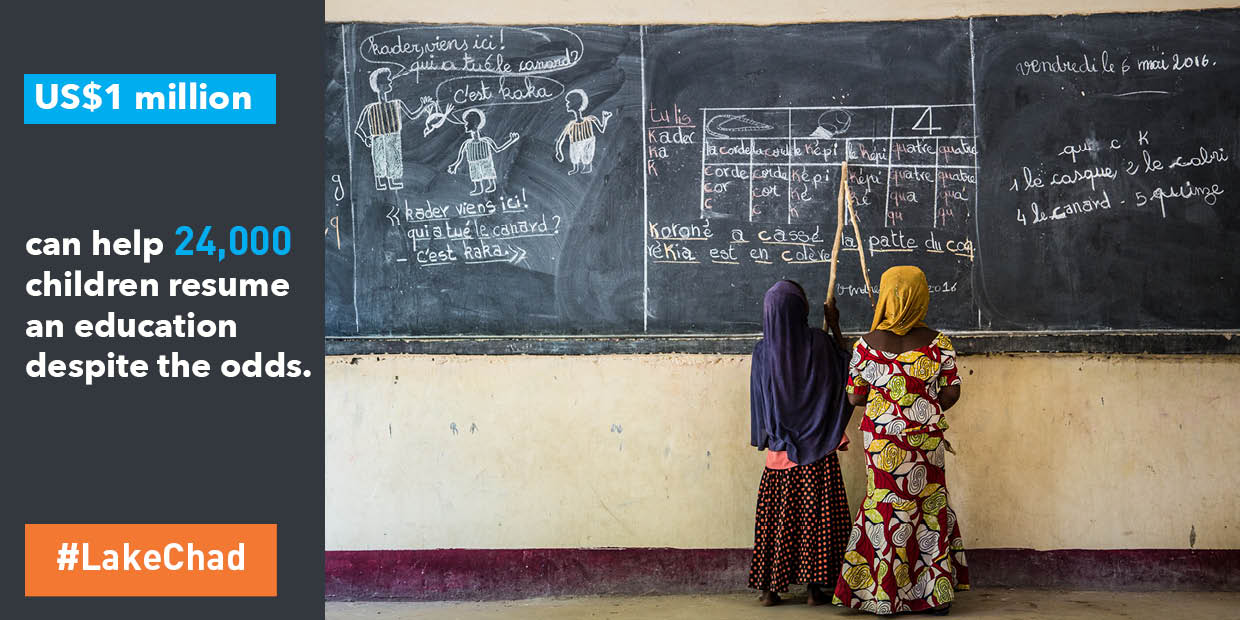 US$1 million
can help 24,000
children resume
an education
despite the odds.
#LakeChad
kader, viens ici!
qui a tué le canard?
c'est kaka
« kader viens ici!
qui a tué le canard?
– c'est kaka. »
tu lis
kader
ka
k
4
la corde la corde le képi le képi quatre quatre
corde corde képi képi quatre quatre
cor cor ké ké qua qua
c c k k qu qu
koroné a cassé la patte du coq
rékia est en colère
2016
vendredi le 6 mai 2016.
qu c k
1 le casque 2 le cabri
4 le canard - 5 quinze
g
q